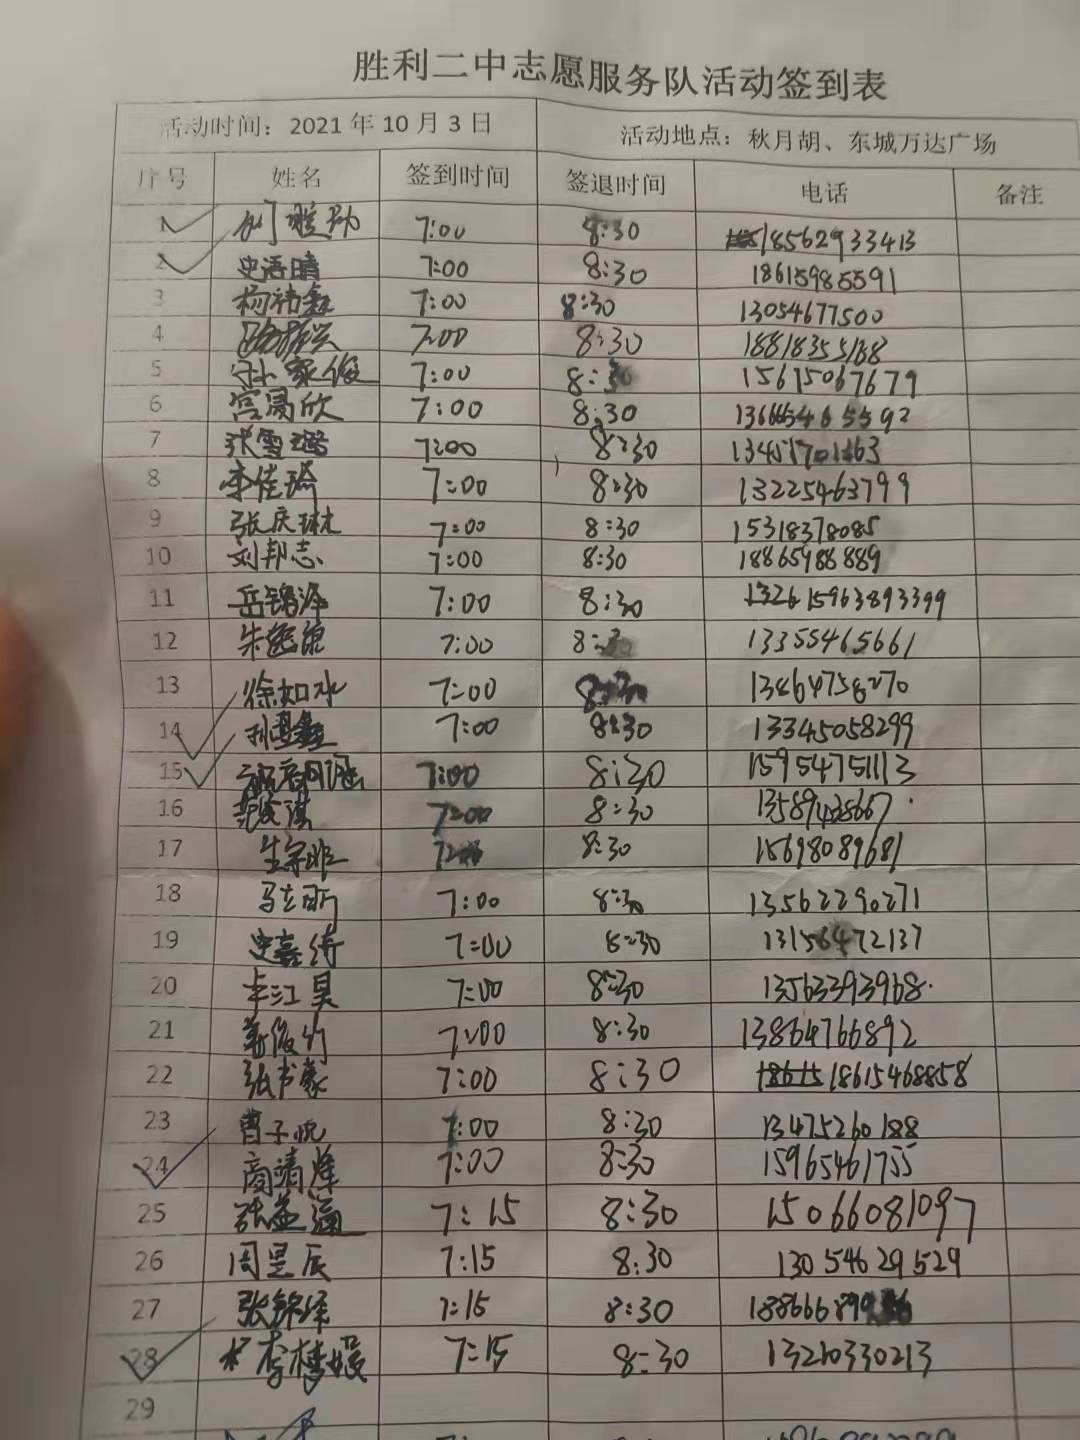 胜利二中志愿服务队活动签到表
活动时间：2021 年 10 月 3 日 活动地点：秋月胡、东城万达广场
序号 姓名 签到时间 签退时间 电话 备注
1 7:00 8:30 18562933413
2 史语晴 7:00 8:30 18615985591
3 杨祎鑫 7:00 8:30 13054677500
4 7:00 8:30 18818355188
5 孙家俊 7:00 8:30 15615067679
6 宫禹欣 7:00 8:30
7 张雪璐 7:00 8:30
8 李佳琦 7:00 8:30 13225463799
9 张庆琳 7:00 8:30 15318378085
10 刘邦志 7:00 8:30 18865988889
11 岳锦泽 7:00 8:30 15963893399
12 朱逸康 7:00 8:30 13355465661
13 徐如水 7:00 8:30 13464758270
14 孙孟鑫 7:00 8:30 13345058299
15 7:00 8:30 15954751113
16 7:00 8:30 13589428667
17 7:00 8:30 15698089681
18 马立昕 7:00 8:30 13562290271
19 史嘉绮 7:00 8:30 13156472137
20 7:00 8:30 13563393968
21 7:00 8:30 13864766892
22 张书豪 7:00 8:30 18615468858
23 曹子悦 7:00 8:30 13475260188
24 商靖烽 7:00 8:30 15965461755
25 张益 7:15 8:30 15066081097
26 周昱辰 7:15 8:30 13054629529
27 张锦泽 7:15 8:30
28 李梦媛 7:15 8:30 13210330213
29